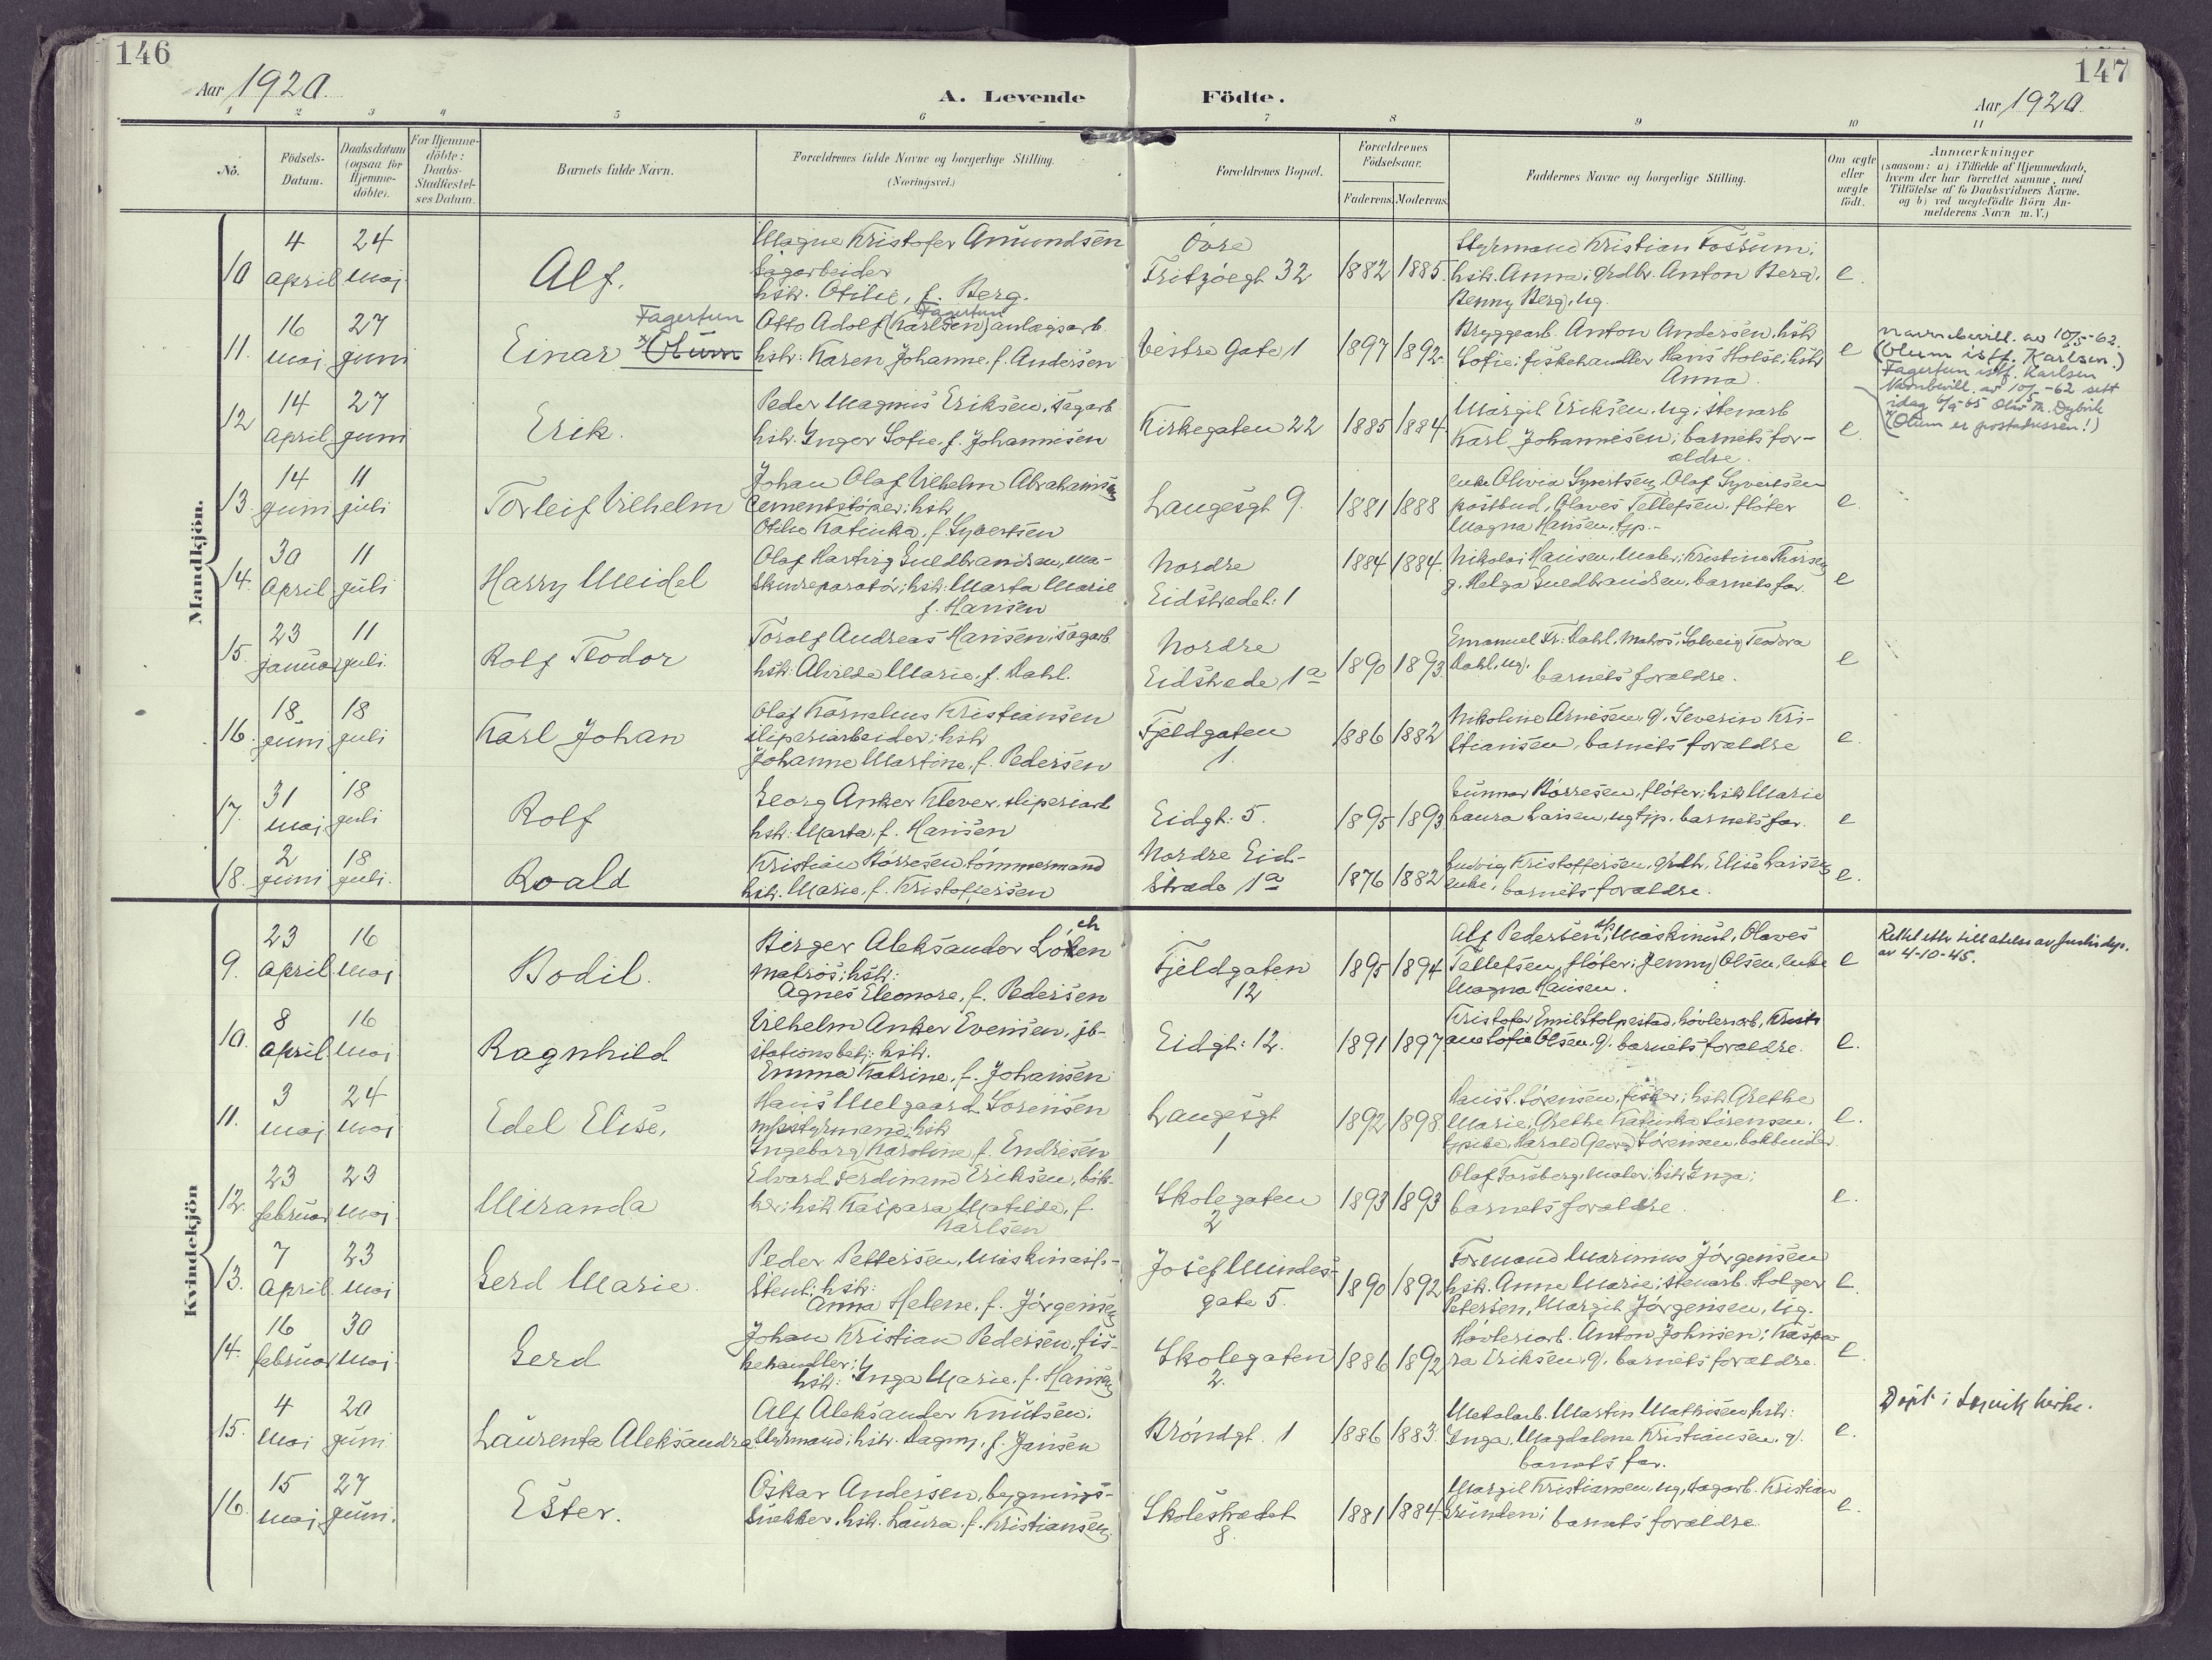 146
147
Aar 1920.
A. Levende Födte.
Aar 1920.
1 2 3 4 5 6 7 8 9 10 11
No.
Födsels-
Datum.
Daabsdatum
(ogsaa for
Hjemme-
döbte).
For Hjemme-
döbte:
Daabs-
Stadfæstel-
ses Datum.
Barnets fulde Navn.
Forældrenes fulde Navne og borgerlige Stilling.
(Næringsvei.)
Forældrenes Bopæl.
Forældrenes
Födselsaar.
Faderens. Moderens.
Faddernes Navne og borgerlige Stilling.
Om ægte
eller
uægte
födt.
Anmærkninger
(saasom: a) i Tilfælde af Hjemmedaab,
hvem der har forrettet samme, med
Tilföielse af to Daabsvidners Navne.
og b) ved uægtefödte Börn An-
melderens Navn m. V.)
Mandkjön.
10
4
April
24
Maj
Alf.
Magne Kristofer Amundsen
Sagarbeider
hstr. Otilie, f. Berg.
Övre
Fritzöegt 32
1882 1885.
Styrmand Kristian Fossum;
hstr. Anna; grdbr. Anton Berg,
Benny Berg, ug.
e.
11.
16
Maj
27
Juni
Einar
Fagertun
x) Olum
Otto Adolf (Karlsen) anlægsarb.
Fagertun
hstr: Karen Johanne, f. Andersen
Vestre Gate 1
1897 1892.
Bryggearb. Anton Andersen, hstr
Sofie; fiskehandler Hans Holse; hstr
Anna.
e
Navnebevill. av 10/5-62.
(Olum istf. Karlsen.)
Fagertun istf. Karlsen
Navnbevill. av 10/5-62 sett
idag 6/9-65
(Olum er postadressen!)
12
14
April
27
Juni
Erik.
Peder Magnus Eriksen, Sagarb.
hstr. Inger Sofie, f. Johannisen
Kirkegaten 22
1885 1884.
Margit Eriksen, ug; stenarb
Karl Johannisen; barnets for-
ældre.
e.
13.
14
Juni
11
Juli
Torleif Vilhelm
Johan Olaf Vilhelm Abrahamsen
Cementstöper; hstr.
Otilie Katinka, f. Syvertsen
Langesgt 9.
1881 1888
enke Olivia Syvertsen, Olaf Syvertsen
postbud, Olaves Tellefsen, flöter
Magna Hansen, tjp.
e.
14.
30
April
11
Juli
Harry Meidel
Olaf Hartvig Guldbrandsen, ma-
skinreparatör; hstr: Marta Marie
f. Hansen
Nordre
Eidstrædet: 1
1884 1884.
Nikolai Hansen, Maler; Kristine Thorsen
g. Helga Guldbrandsen, barnets far.
e
15.
23
Januar
11
Juli.
Rolf Teodor
Torolf Andreas Hansen; Sagarb
hstr: Alvilde Marie, f. Dahl.
Nordre
Eidstræde 1a
1890 1893.
Emanuel Fr: Dahl, Matros; Solveig Teodora
Dahl, ug.
barnets forældre.
e
16.
18
Juni
18
Juli
Karl Johan
Olaf Kornelius Kristiansen
sliperiarbeider; hstr
Johanne Martine, f. Pedersen
Fjeldgaten
1.
1886 1882
Nikoline Arnesen, g. Severin Kri-
stiansen, barnets forældre
e.
17.
31
Maj
18
Juli
Rolf
Georg Anker Klever, sliperiarb
hstr: Marta, f. Hansen
Eidgt: 5.
1895 1893
Gunnar Börresen, flöter; hstr Marie
Laura Larsen, ug tjp. barnets far.
e
18.
2
Juni
18
Juli.
Roald
Kristian Börresen, tömmermand
hstr. Marie, f. Kristoffersen
Nordre Eid-
stræde 1a
1876 1882
Ludvig Kristoffersen, grdb, Elise Larsen,
enke, barnets forældre.
e.
Kvindekjön
9.
23
April
16
Maj
Bodil.
Birger Aleksander Löken
ch
Matros; hstr:
Agnes Eleonore, f. Pedersen
Fjeldgaten
12
1895 1894
Alf Pedersen, Maskinist, Olaves
Tellefsen, flöter; Jenny Olsen, enke
Magna Hansen.
e
av 4-10-45.
10.
8
April
16
Maj
Ragnhild
Vilhelm Anker Evensen, jb-
stationsbetj; hstr.
Emma Katrine, f. Johansen
Eidgt: 12.
1891 1897
Kristofer Emil Stolpestad, hövleriarb, Kristi
ane Sofie Olsen, g. barnets forældre.
e.
11.
3
Maj
24
Maj
Edel Elise,
Hans Melgaard Sorensen
styrmand; hstr
Ingeborg Karoline, f. Endresen
Langesgt
1
1892 1898
Hans T. Sörensen, fisker; hstr. Grethe
Marie, Grethe Katinka Sörensen,
Harald Georg Sörensen, bokbinder.
e.
12.
23
februar
23
Maj
Miranda
Edvard Ferdinand Eriksen, bök-
ker; hstr Kaspara Matilde, f.
Karlsen
Skolegaten
2
1893 1893
Olaf Forsberg, Maler; hstr Inga;
barnets forældre.
e.
13.
7
April
23
Maj
Gerd Marie.
Peder Pettersen, Maskinassi-
stent; hstr:
Anna Helene, f. Jörgensen
Josef Mindes-
gate 5.
1890 1892
Formand Marinius Jörgensen
hstr. Anne Marie; stenarb. Holger
Petersen, Margit Jörgensen, ug.
e.
14.
16
februar
30
Maj
Gerd
Johan Kristian Pedersen, fis-
kehandler;
hstr: Inga Marie, f. Hansen
Skolegaten
2.
1886 1892
Hövleriarb. Anton Johnsen; Kaspa-
ra Eriksen, g. barnets forældre.
e.
15.
4
Maj
20
Juni
Laurenta Aleksandra
Alf Aleksander Knutsen;
Styrmand; hstr. Dagny, f. Jansen
Bröndgt. 1
1886 1883.
Metalarb. Martin Mathisen hstr:
Inga, Magdalene Kristiansen, g.
barnets far.
e.
Döpt i Larvik kirke.
16.
15
Maj
27
Juni.
Ester.
Oskar Andersen, bygnings-
snekker, hstr. Laura, f. Kristiansen
Skolestrædet
8.
1881 1884
Margit Kristiansen, ug, sagarb. Kristian
Grunden;
barnets forældre
e.